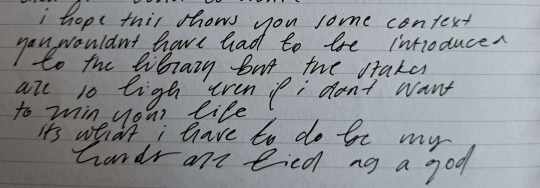 i hope this shows you some context
you wouldnt have had to be introduced
to the library but the stakes
are so high even if i dont want
to ruin your life
its what i have to do bc my
hands are tied as a god